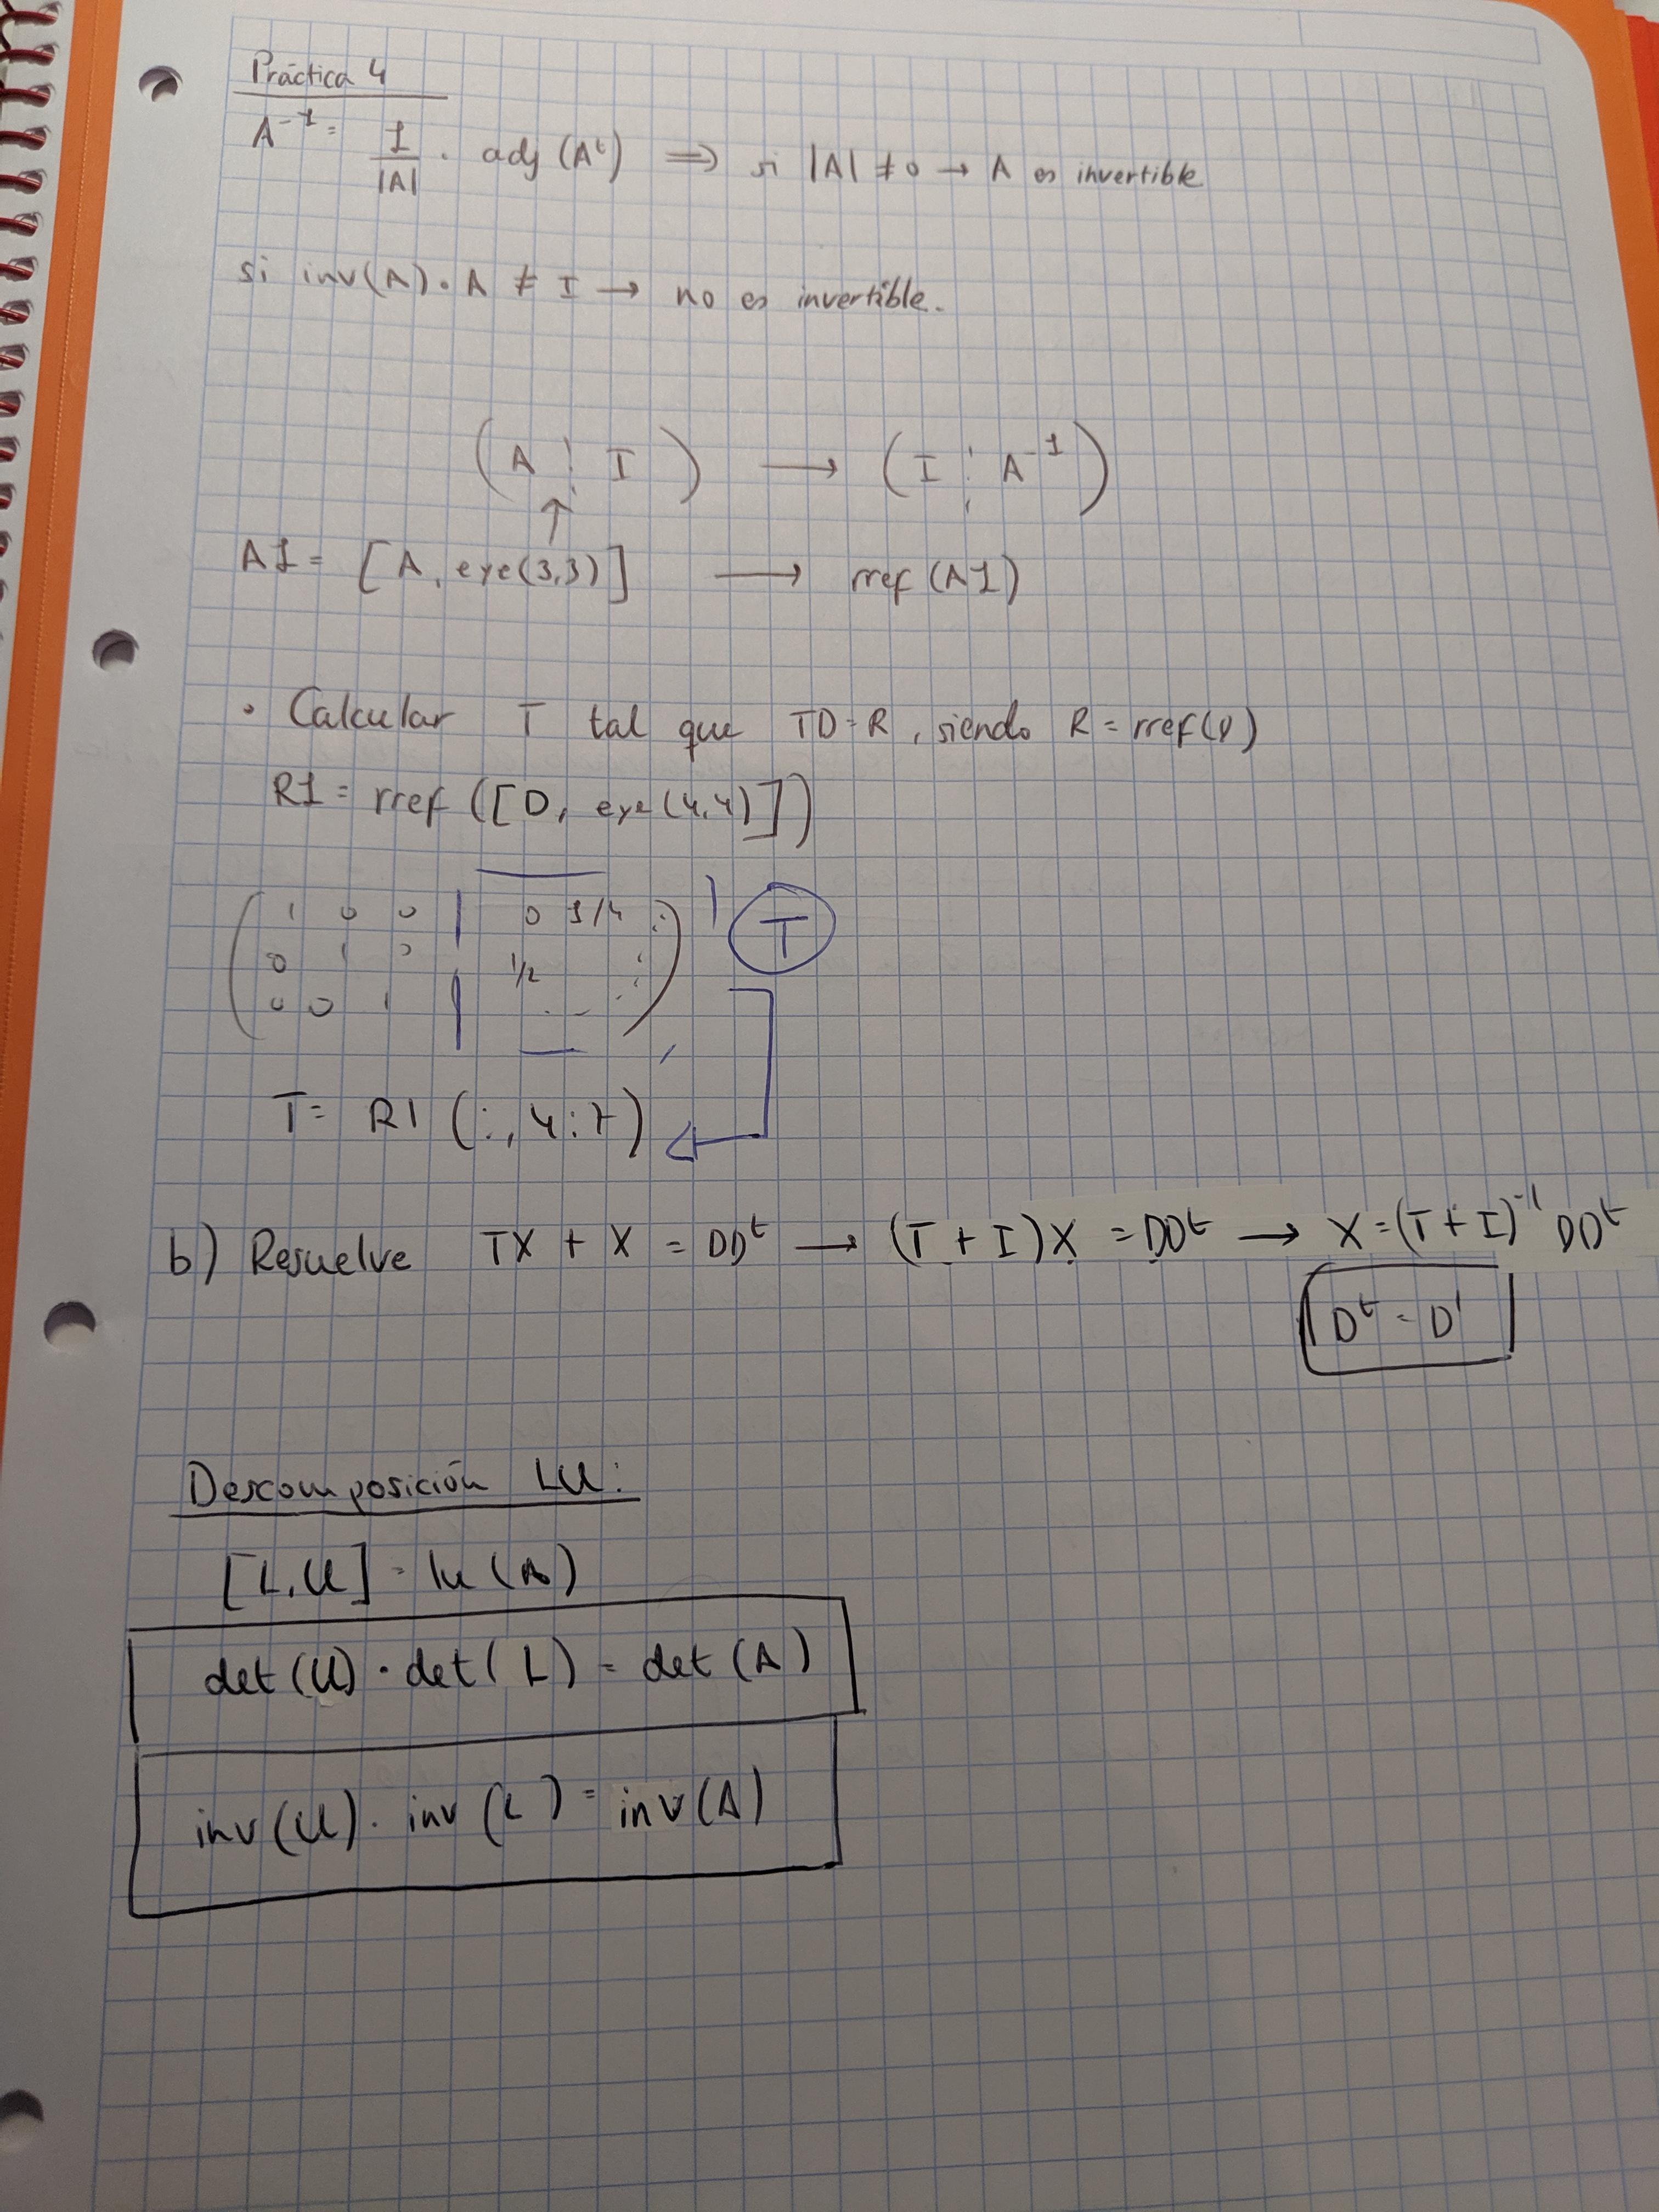 Práctica 4
A⁻¹ = 1/|A| · adj (Aᵗ) ⟹ si |A| ≠ 0 → A es invertible
si inv(A) · A ≠ I → no es invertible.
( A ¦ I ) → ( I ¦ A⁻¹ )
↑
A1 = [A, eye(3,3)] → rref (A1)
· Calcular T tal que TD = R, siendo R = rref(D)
R1 = rref ([D, eye(4,4)])
1 0 0 | 0 1/4 .
0 1 0 1/2 :
0 0 1 | . . .
T
T = R1 (:, 4:7)
b) Resuelve TX + X = DDᵗ → (T + I)X = DDᵗ → X = (T + I)⁻¹ DDᵗ
Dᵗ = D'
Descomposición LU:
[L,U] = lu (A)
det (U) · det ( L ) = det (A)
inv (U) · inv (L) = inv (A)